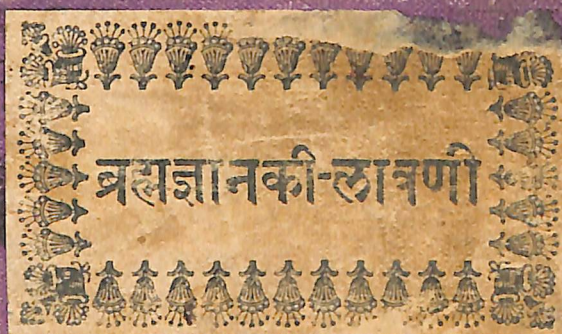 ब्रह्मज्ञानकी-लावणी